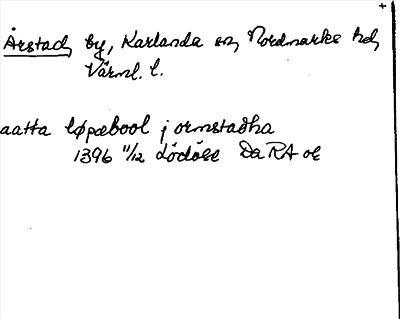 +
Årstad, by, Karlanda sn, Nordmarks hd,
Värml. l.
aatta løpæbool j ormstadha
1396 11/12 Lödöse DaRA or